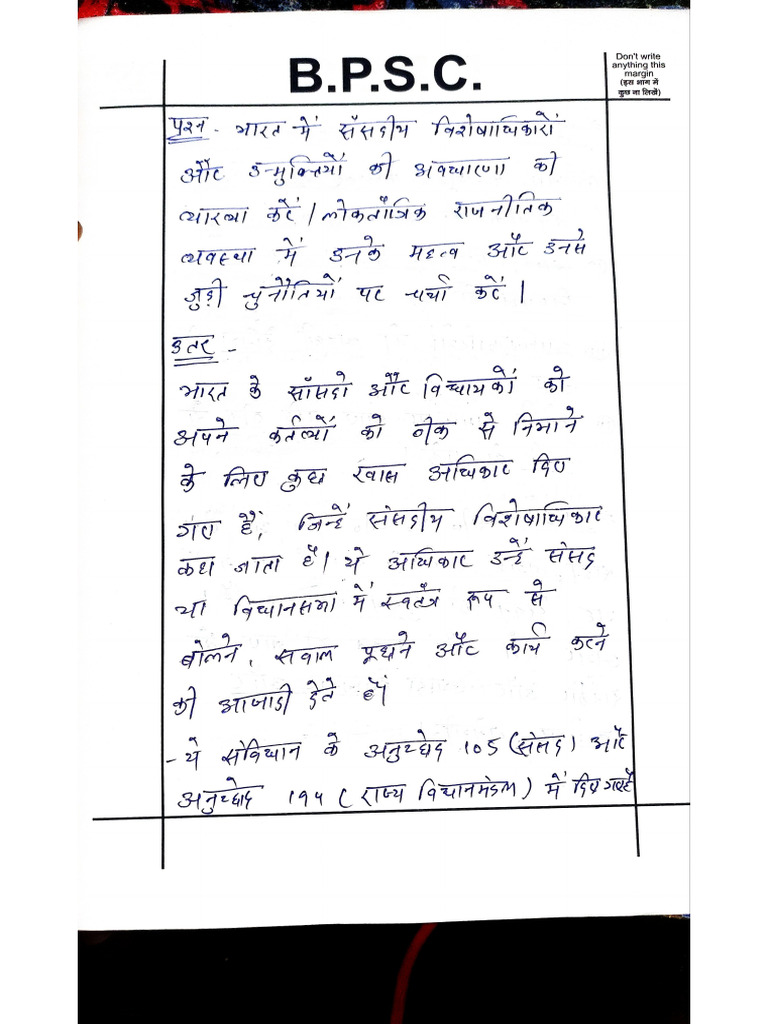 B.P.S.C.
Don't write
anything this
margin
(इस भाग में
कुछ ना लिखें)
प्रश्न - भारत में संसदीय विशेषाधिकारों
और उन्मुक्तियों की अवधारणा की
व्याख्या करें। लोकतांत्रिक राजनीतिक
व्यवस्था में इनके महत्व और इनसे
जुड़ी चुनौतियों पर चर्चा करें।
उतर -
भारत के सांसदो और विधायकों को
अपने कर्तव्यों को ठीक से निभाने
के लिए कुछ खास अधिकार दिए
गए हैं, जिन्हें संसदीय विशेषाधिकार
कहा जाता है। ये अधिकार उन्हें संसद
या विधानसभा में स्वतंत्र रूप से
बोलने, सवाल पूछने और कार्य करने
की आजादी देते हैं।
- ये संविधान के अनुच्छेद 105 (संसद) और
अनुच्छेद 194 (राज्य विधानमंडल) में दिए गए हैं